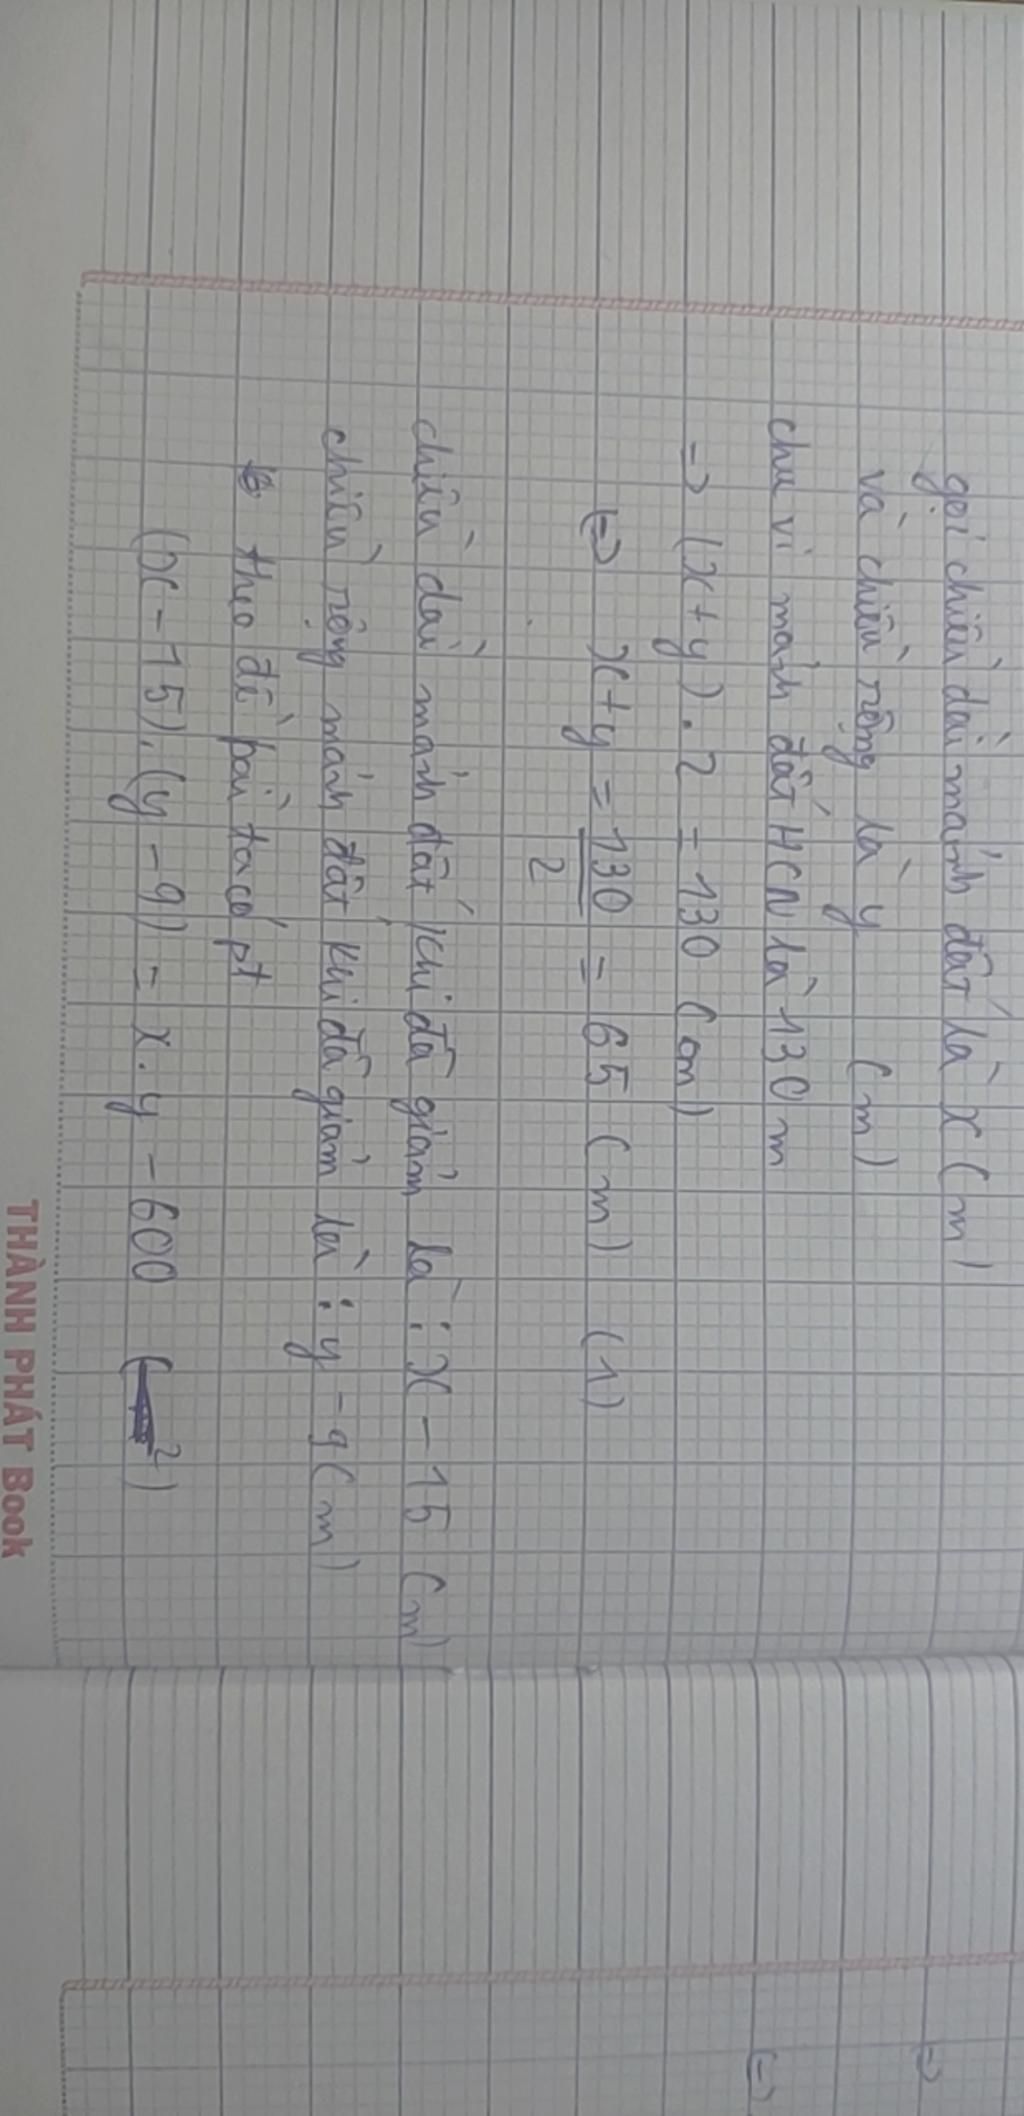 gọi chiều dài mảnh đất là x (m)
và chiều rộng là y (m)
chu vi mảnh đất HCN là 130 m
=> (x + y) . 2 = 130 (m)
<=> x + y = 130/2 = 65 (m) (1)
chiều dài mảnh đất khi đã giảm là : x - 15 (m)
chiều rộng mảnh đất khi đã giảm là : y - 9 (m)
theo đề bài ta có pt
(x - 15) . (y - 9) = x . y - 600
THÀNH PHÁT Book
=>
<=>